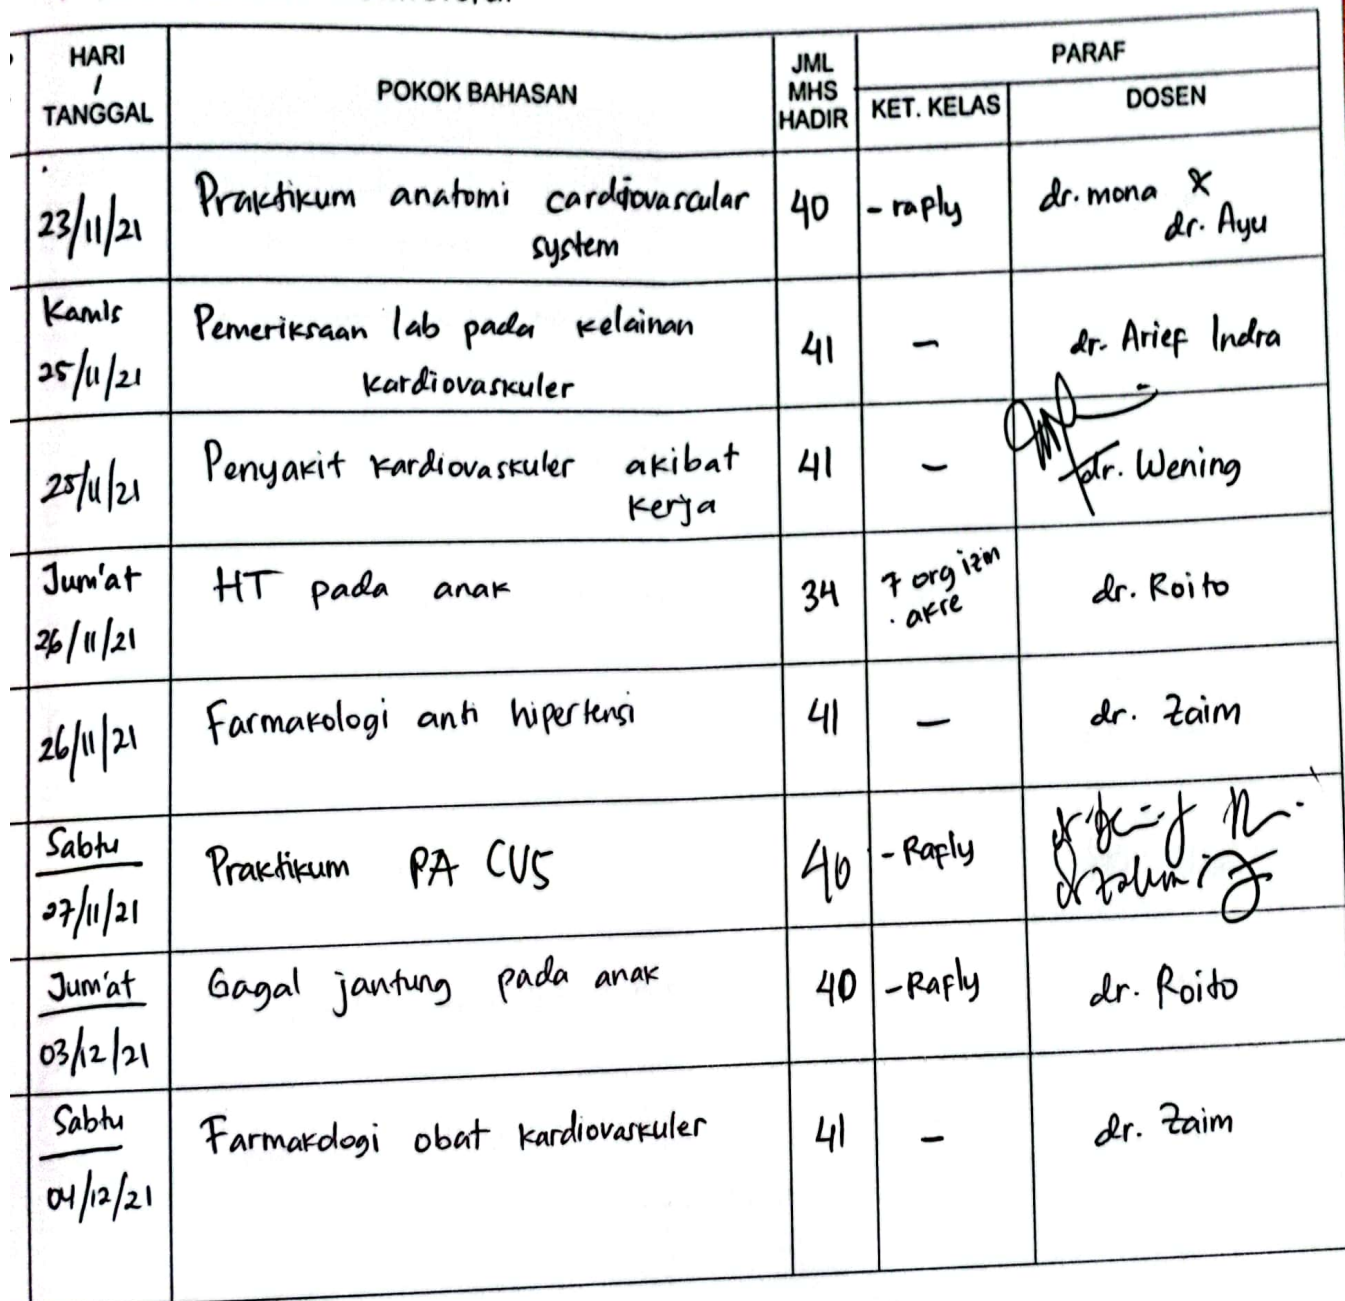 HARI
/
TANGGAL
POKOK BAHASAN
JML
MHS
HADIR
PARAF
KET. KELAS
DOSEN
23/11/21
Praktikum anatomi cardiovascular
system
40
- raply
dr. mona &
dr. Ayu
Kamis
25/11/21
Pemeriksaan lab pada kelainan
kardiovaskuler
41
-
dr. Arief Indra
25/11/21
Penyakit kardiovaskuler akibat
kerja
41
-
dr. Wening
Jum'at
26/11/21
HT pada anak
34
7 org izin
akre
dr. Roito
26/11/21
Farmakologi anti hipertensi
41
-
dr. Zaim
Sabtu
27/11/21
Praktikum PA CVS
40
- Rafly
Jum'at
03/12/21
Gagal jantung pada anak
40
- Rafly
dr. Roito
Sabtu
04/12/21
Farmakologi obat kardiovaskuler
41
-
dr. Zaim